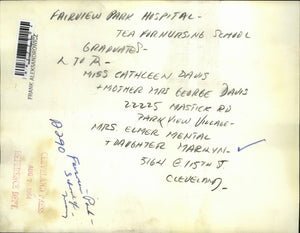 FAIRVIEW PARK HOSPITAL-
TEA FOR NURSING SCHOOL
GRADUATES-
L TO R-
MISS CATHLEEN DAVIS
+ MOTHER MRS GEORGE DAVIS
22225 MASTICK RD
PARKVIEW VILLAGE-
MRS ELMER MENTAL
+ DAUGHTER MARILYN-
3164 E 115TH ST
CLEVELAND-
FRANK ALEKSANDROWICZ
REFERENCE DEPT.